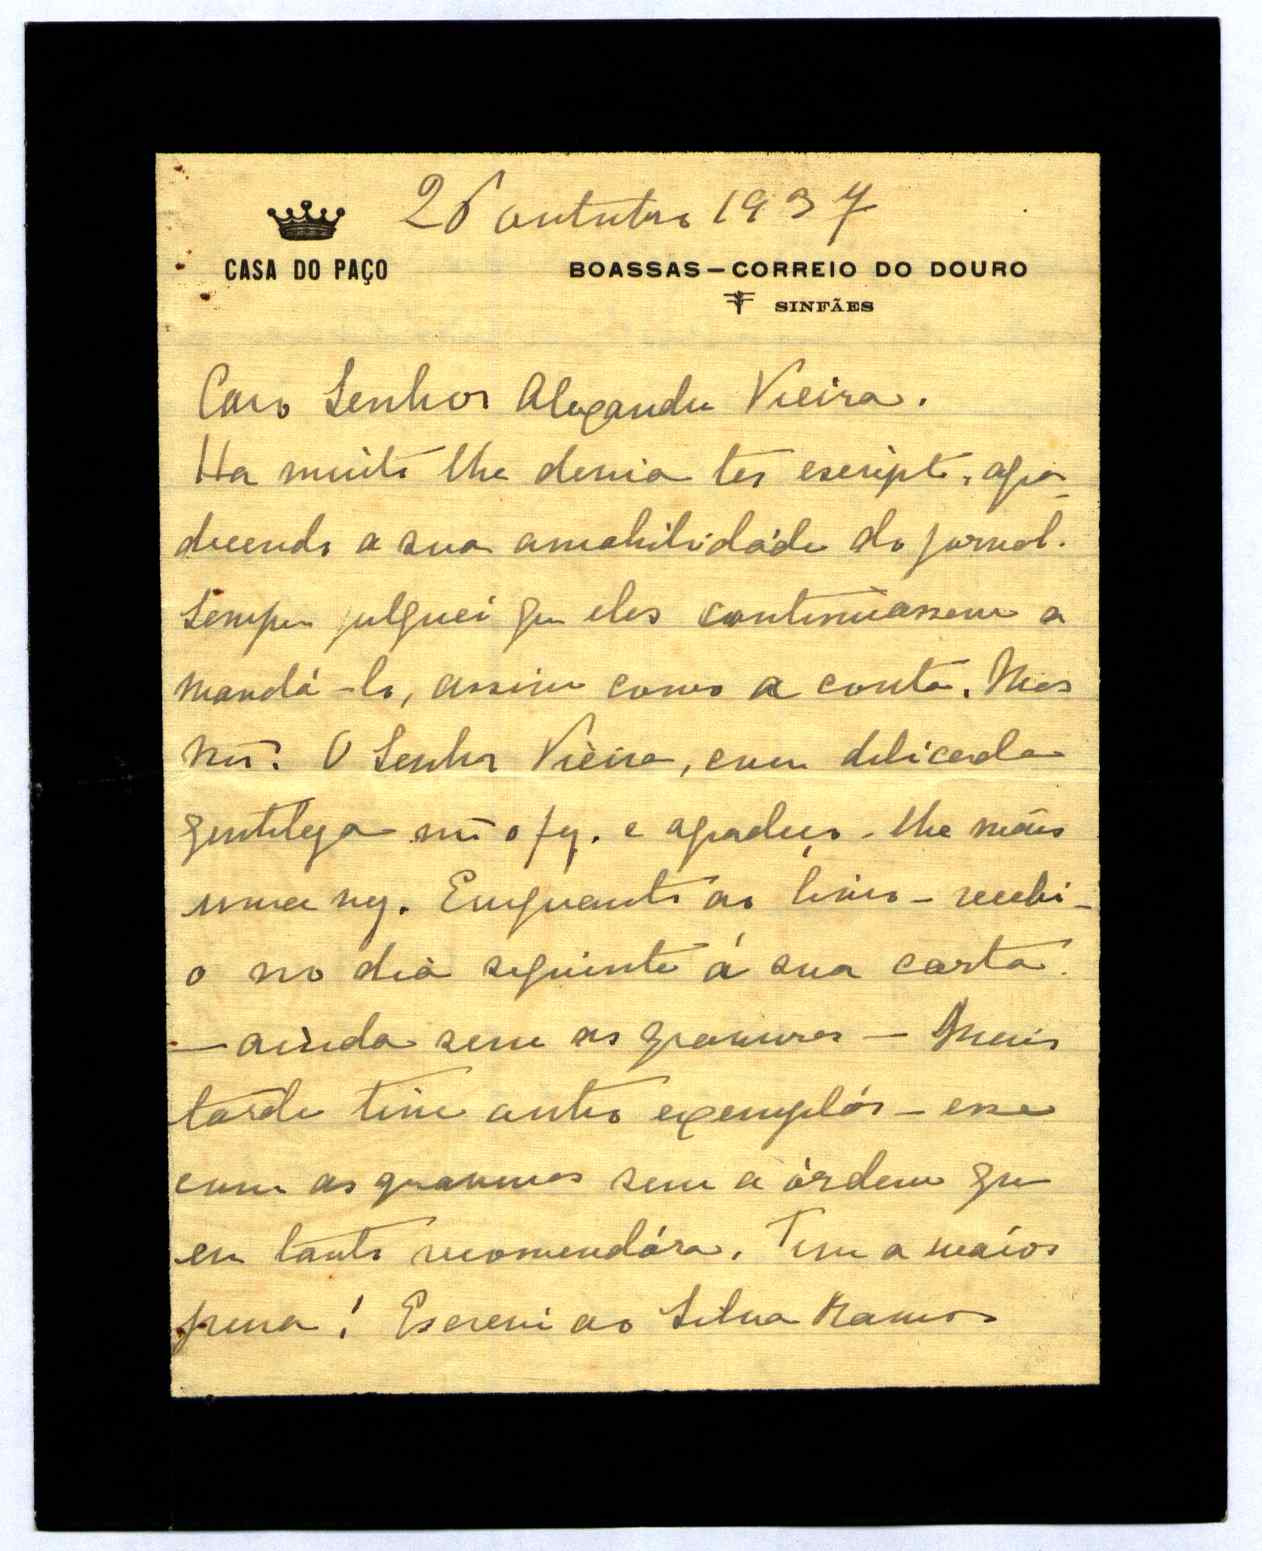 26 outubro 1937
CASA DO PAÇO
BOASSAS – CORREIO DO DOURO
SINFÃES
Caro Senhor Alexandre Vieira.
Ha muito lhe devia ter escripto, agra-
decendo a sua amabilidade do jornal.
Sempre julguei que eles continuassem a
mandá-lo, assim como a conta. Mas
não. O Senhor Vieira, com delicada
gentileza o fez. e agradeço-lhe mais
uma vez. Emquanto ao livro – recebi-
o no dia seguinte á sua carta.
– ainda sem as gravuras – Mais
tarde tive outro exemplár – esse
com as gravuras sem a órdem que
eu tanto recomendára. Tive a maior
pena! Escrevi ao Silva Ramos